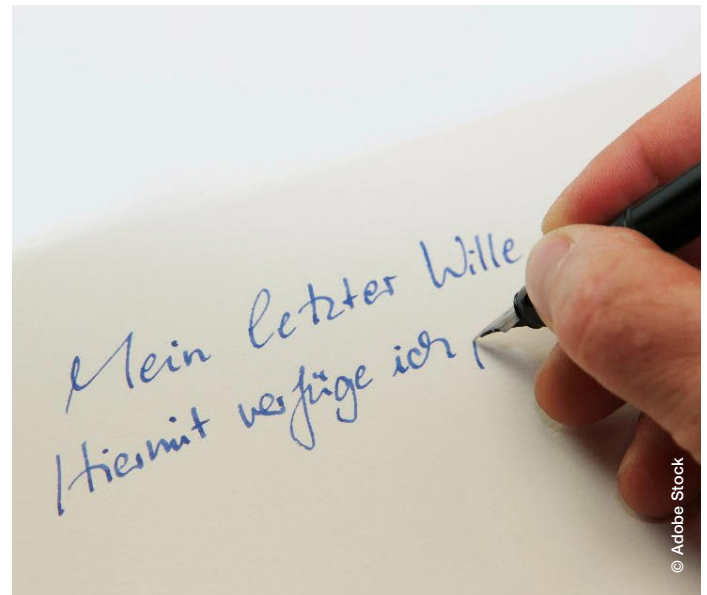 Mein letzter Wille
Hiermit verfüge ich
© Adobe Stock